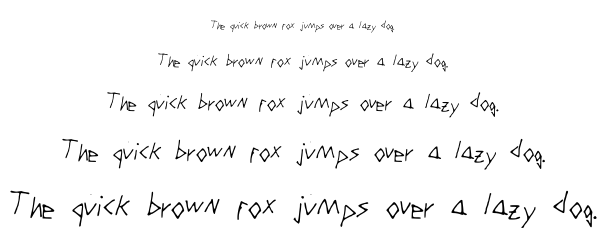 The quick brown fox jumps over a lazy dog.
The quick brown fox jumps over a lazy dog.
The quick brown fox jumps over a lazy dog.
The quick brown fox jumps over a lazy dog.
The quick brown fox jumps over a lazy dog.